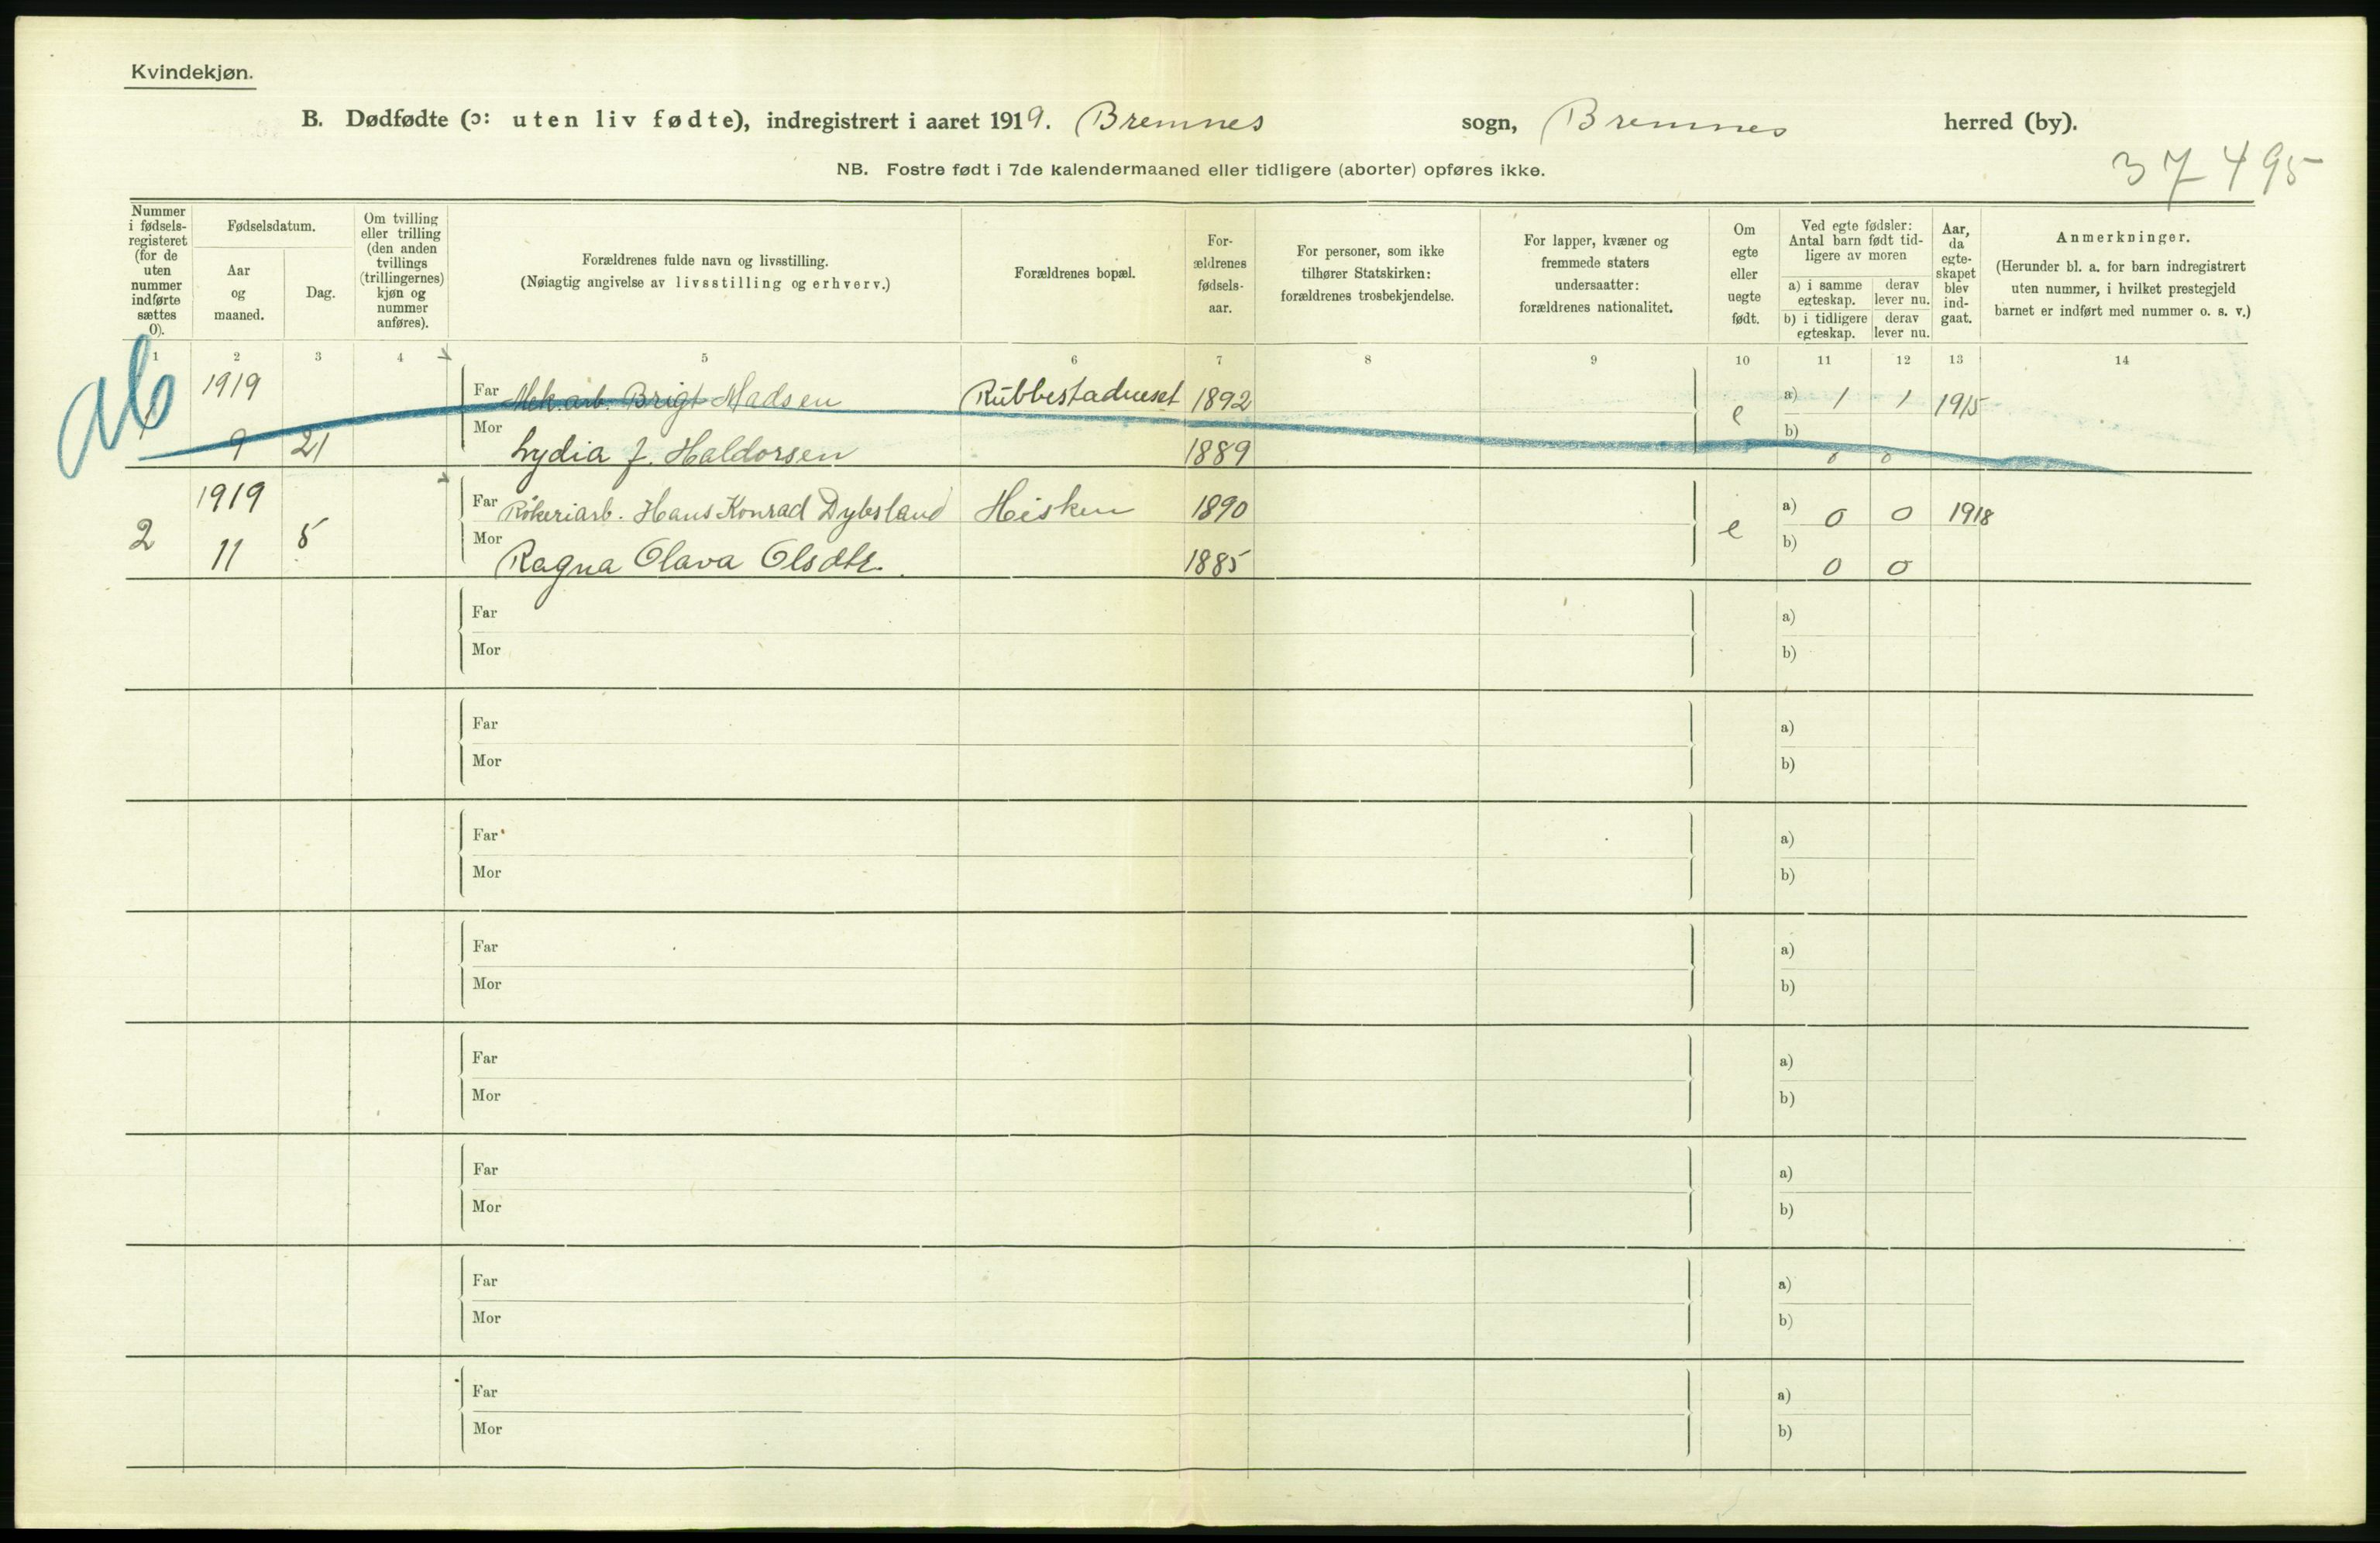 Kvindekjøn.
B. Dødfødte (ɔ: uten liv fødte), indregistrert i aaret 1919. Bremnes sogn, Bremnes herred (by).
NB. Fostre født i 7de kalendermaaned eller tidligere (aborter) opføres ikke.
37495
Nummer
i fødsels-
registeret
(for de
uten
nummer
indførte
sættes
0).
Fødselsdatum.
Aar
og
maaned.
Dag.
Om tvilling
eller trilling
(den anden
tvillings
(trillingernes)
kjøn og
nummer
anføres).
Forældrenes fulde navn og livsstilling.
(Nøiagtig angivelse av livsstilling og erhverv.)
Forældrenes bopæl.
For-
ældrenes
fødsels-
aar.
For personer, som ikke
tilhører Statskirken:
forældrenes trosbekjendelse.
For lapper, kvæner og
fremmede staters
undersaatter:
forældrenes nationalitet.
Om
egte
eller
uegte
født.
Ved egte fødsler:
Antal barn født tid-
ligere av moren
a) i samme
egteskap.
derav
lever nu.
b) i tidligere
egteskap.
derav
lever nu.
Aar,
da
egte-
skapet
blev
ind-
gaat.
Anmerkninger.
(Herunder bl. a. for barn indregistrert
uten nummer, i hvilket prestegjeld
barnet er indført med nummer o. s. v.)
1 2 3 4 5 6 7 8 9 10 11 12 13 14
ab
1919 Far Mek.arb. Brigt Madsen 1892 a) 1 1 1915
1 9 21 Mor Lydia J. Haldorsen 1889 e b) 0 0
1919 Far Røkeriarb. Hans Konrad Dybsland Heisken 1890 a) 0 0 1918
2 11 5 Mor Ragna Olava Olsdtr. 1885 e b) 0 0
Far a)
Mor b)
Far a)
Mor b)
Far a)
Mor b)
Far a)
Mor b)
Far a)
Mor b)
Far a)
Mor b)
Far a)
Mor b)
Far a)
Mor b)